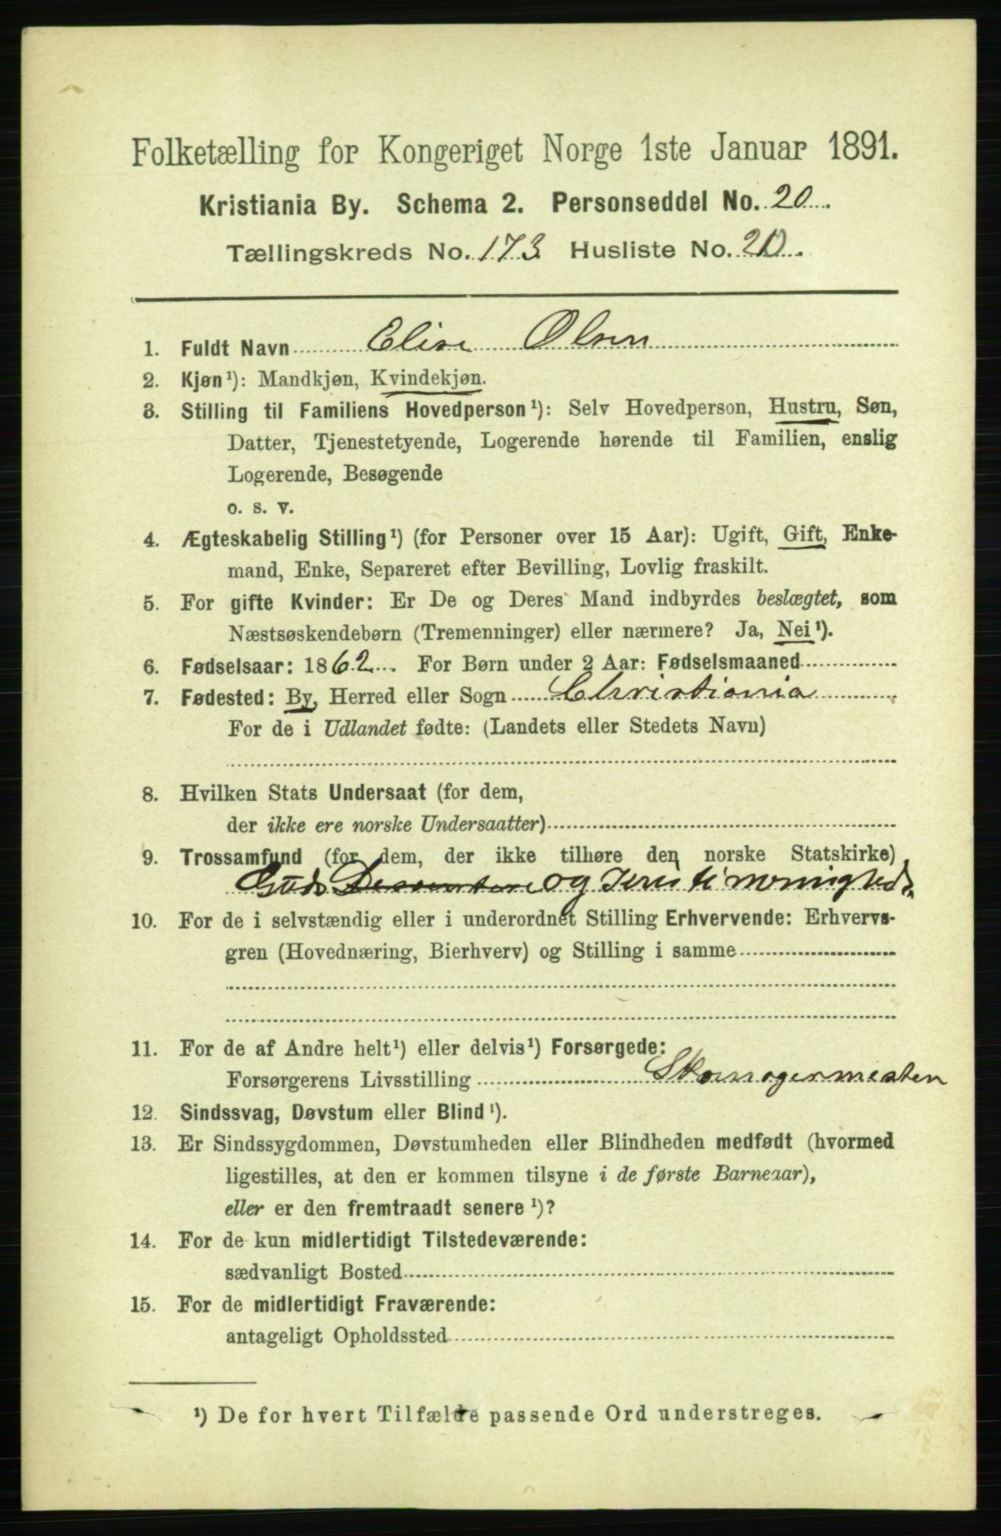 Folketælling for Kongeriget Norge 1ste Januar 1891.
Kristiania By. Schema 2. Personseddel No. 20.
Tællingskreds No. 173 Husliste No. 20.
1. Fuldt Navn Elise Olsen
2. Kjøn¹): Mandkjøn, Kvindekjøn.
3. Stilling til Familiens Hovedperson¹): Selv Hovedperson, Hustru, Søn,
Datter, Tjenestetyende, Logerende hørende til Familien, enslig
Logerende, Besøgende
o. s. v.
4. Ægteskabelig Stilling¹) (for Personer over 15 Aar): Ugift, Gift, Enke-
mand, Enke, Separeret efter Bevilling, Lovlig fraskilt.
5. For gifte Kvinder: Er De og Deres Mand indbyrdes beslægtet, som
Næstsøskendebørn (Tremenninger) eller nærmere? Ja, Nei¹).
6. Fødselsaar: 1862. For Børn under 2 Aar: Fødselsmaaned
7. Fødested: By, Herred eller Sogn Christiania
For de i Udlandet fødte: (Landets eller Stedets Navn)
8. Hvilken Stats Undersaat (for dem,
der ikke ere norske Undersaatter)
9. Trossamfund (for dem, der ikke tilhøre den norske Statskirke)
Guds og menighed
10. For de i selvstændig eller i underordnet Stilling Erhvervende: Erhvervs-
gren (Hovednæring, Bierhverv) og Stilling i samme
11. For de af Andre helt¹) eller delvis¹) Forsørgede:
Forsørgerens Livsstilling Skomagermesten
12. Sindssvag, Døvstum eller Blind¹).
13. Er Sindssygdommen, Døvstumheden eller Blindheden medfødt (hvormed
ligestilles, at den er kommen tilsyne i de første Barneaar),
eller er den fremtraadt senere¹)?
14. For de kun midlertidigt Tilstedeværende:
sædvanligt Bosted
15. For de midlertidigt Fraværende:
antageligt Opholdssted
¹) De for hvert Tilfælde passende Ord understreges.